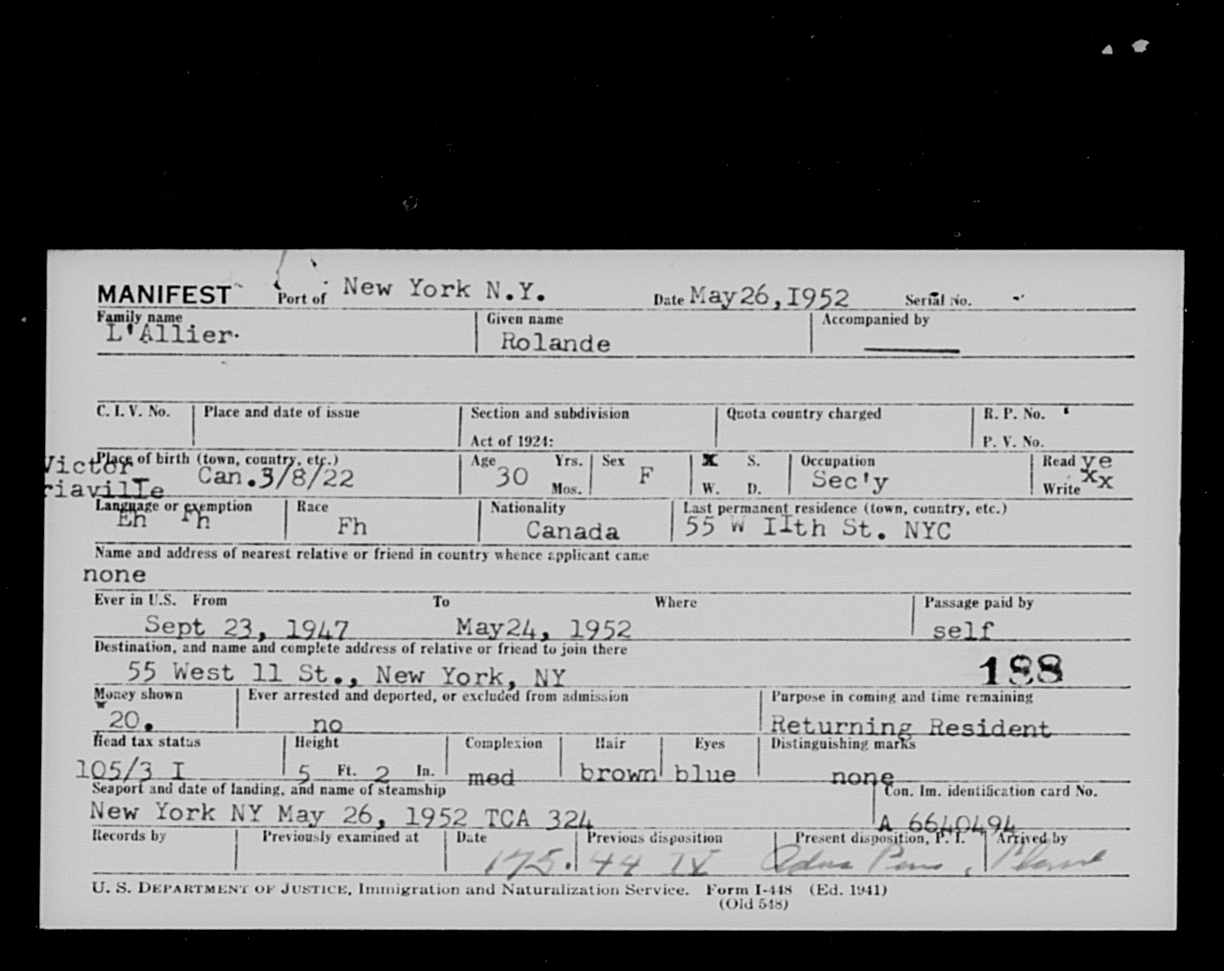 MANIFEST Port of New York N.Y. Date May 26, I952 Serial No.
Family name Given name Accompanied by
L'Allier Rolande
C. I. V. No. Place and date of issue Section and subdivision Quota country charged R. P. No.
Act of 1924: P. V. No.
Place of birth (town, country, etc.) Age Yrs. Sex X S. Occupation Read ye
Victor Can. 3/8/22 30 F Sec'y
riaville Mos. W. D. Write xx
Language or exemption Race Nationality Last permanent residence (town, country, etc.)
Eh Fh Fh Canada 55 W IIth St. NYC
Name and address of nearest relative or friend in country whence applicant came
none
Ever in U.S. From To Where Passage paid by
Sept 23, 1947 May24, 1952 self
Destination, and name and complete address of relative or friend to join there
55 West 11 St., New York, NY 188
Money shown Ever arrested and deported, or excluded from admission Purpose in coming and time remaining
20. no Returning Resident
Head tax status Height Complexion Hair Eyes Distinguishing marks
105/3 I 5 Ft. 2 In. med brown blue none
Seaport and date of landing, and name of steamship Con. Im. identification card No.
New York NY May 26, 1952 TCA 324 A 6640494
Records by Previously examined at Date Previous disposition Present disposition, P. I. Arrived by
175. 44 IV Plane
U. S. DEPARTMENT OF JUSTICE, Immigration and Naturalization Service. Form I-448 (Ed. 1941)
(Old 548)